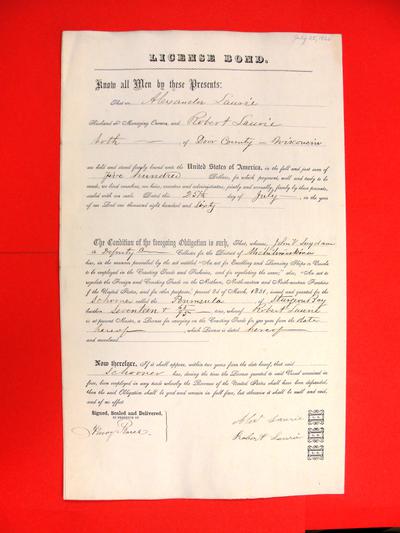 July 25, 1860
LICENSE BOND.
Know all Men by these Presents:
That we Alexander Laurie
Husband & Managing Owner, and Robert Laurie
both of Door County - Wisconsin
are held and stand firmly bound unto the United States of America, in the full and just sum of
five hundred Dollars, for which payment, well and truly to be
made, we bind ourselves, our heirs, executors and administrators, jointly and severally, firmly by these presents,
sealed with our seals. Dated this 25th day of July, in the year
of our Lord one thousand eight hundred and Sixty
The Condition of the foregoing Obligation is such, That, whereas, John V. Suydam
is Deputy Collector for the District of Michilimackinac
has, in the manner prescribed by the act entitled "An act for Enrolling and Licensing Ships or Vessels
to be employed in the Coasting Trade and Fisheries, and for regulating the same;" also, "An act to
regulate the Foreign and Coasting Trade on the Northern, North-eastern and North-western Frontiers
of the United States, and for other purposes," passed 2d of March, 1831, issued and granted for the
Schooner called the Peninsula of Sturgeon Bay
burthen Seventeen & /95 tons, whereof Robert Laurie
is at present Master, a License for carrying on the Coasting Trade for one year from the date
hereof, which License is dated hereof
and numbered
Now therefore, If it shall appear, within two years from the date hereof, that said
Schooner has, during the time the License granted to said Vessel continued in
force, been employed in any trade whereby the Revenue of the United States shall have been defrauded,
then the said Obligation shall be void and remain in full force, but otherwise it shall be null and void,
and of no effect
Signed, Sealed and Delivered,
IN PRESENCE OF
Alexr Laurie
Robert Laurie